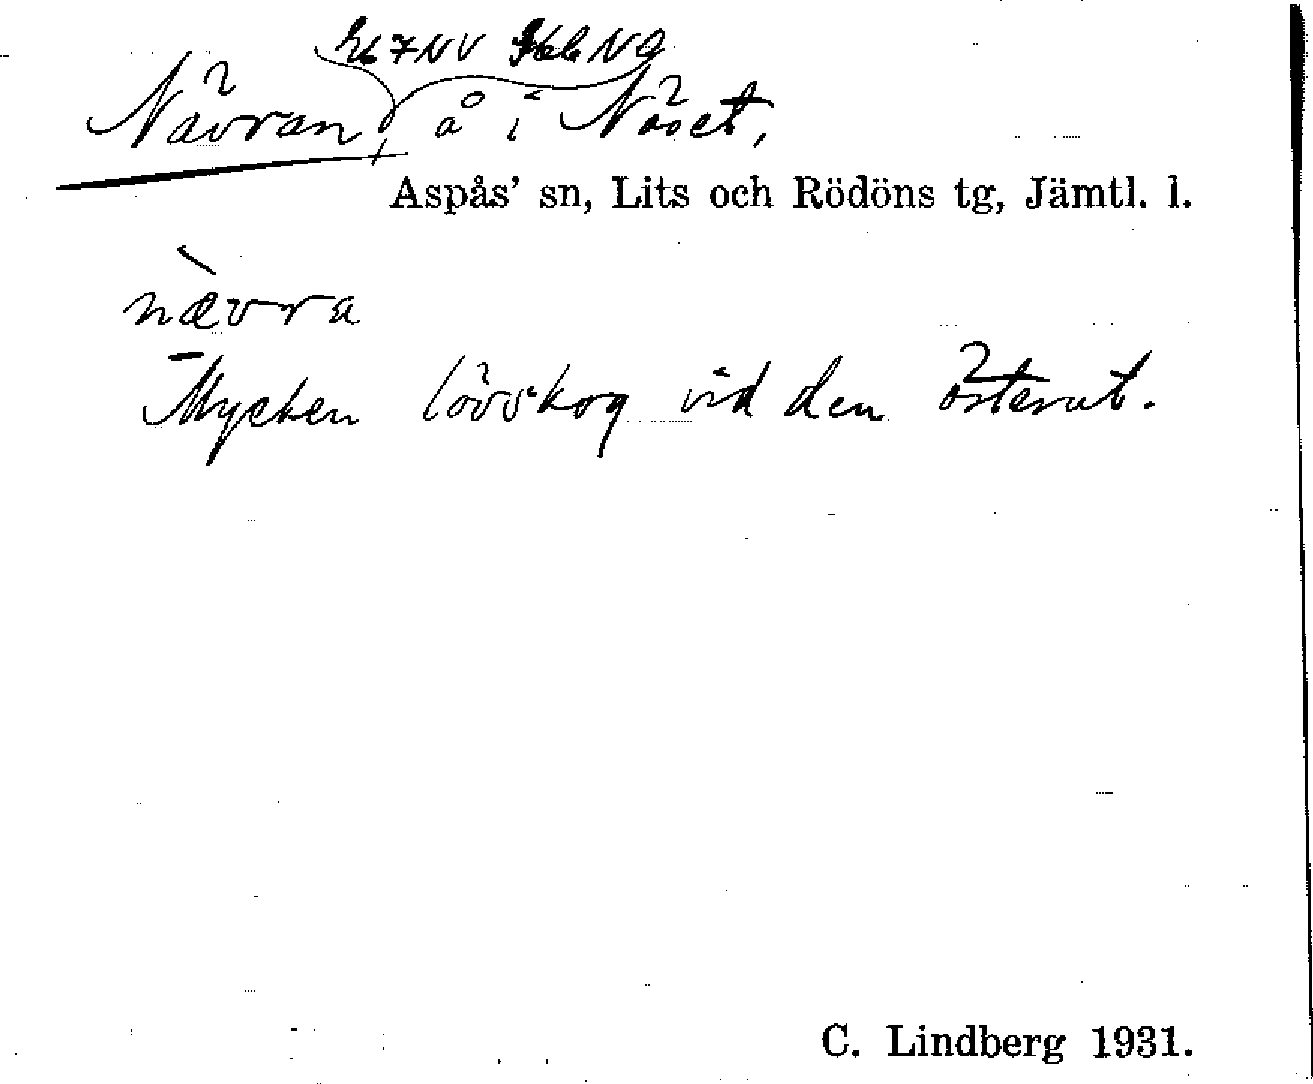 Nävran, å i Näset,
Aspås' sn, Lits och Rödöns tg, Jämtl. l.
nævra
Mycken lövskog vid den österut.
C. Lindberg 1931.